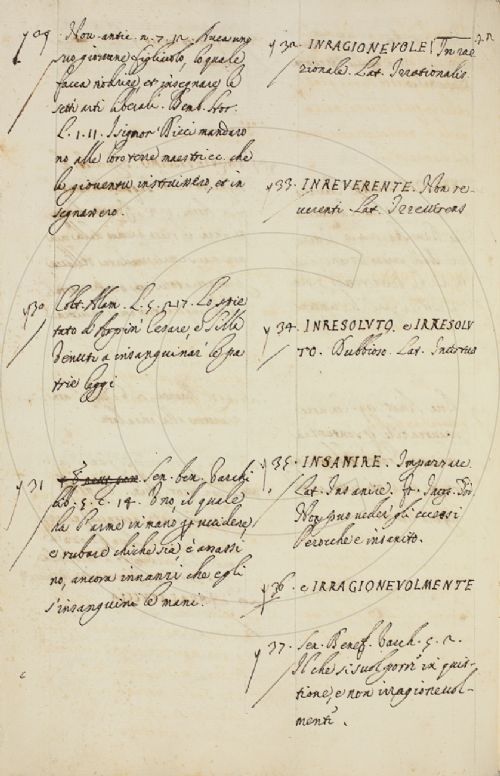 γ 29 Nov. antic. n. 7. 52. Avea uno
suo giovane figliuolo, lo quale
facea nodrire, et insegnare le
setti arti liberali. Bemb. stor.
L. 1. 11. I signor Dieci mandaro
no alle loro terre maestri ec. che
la gioventù instruissero, et in
segnassero.
γ 30 Colt. Alam. L. 5. 217. Lo spie
tato di
Cesare, e Silla
Venuti a insanguinar le pa
trie leggi
γ 31 Sen. ben. Varchi
lib. 5. c. 14. Uno, il quale
ha l'arme in mano per uccidere,
e rubare chiche sia, è assassi
no, ancora innanzi che egli
s'insanguini le mani.
γ 32. INRAGIONEVOLE. Inra
zionale. Lat. Irrationalis
γ 33. INREVERENTE. Non re-
verente. Lat. Irreverens
γ 34. INRESOLUTO, e IRRESOLU
TO. Dubbioso. Lat. Incertus
γ 35. INSANIRE. Impazzare.
Lat. Insanire. Fr. Iac. Tod.
Non può veder gli eccessi
Perocchè è insanito.
γ 36. e IRRAGIONEVOLMENTE
γ 37. Sen. Benef. Varch. 5. 2.
Il che si suol porre in quis-
tione, e non irragionevol-
mente.